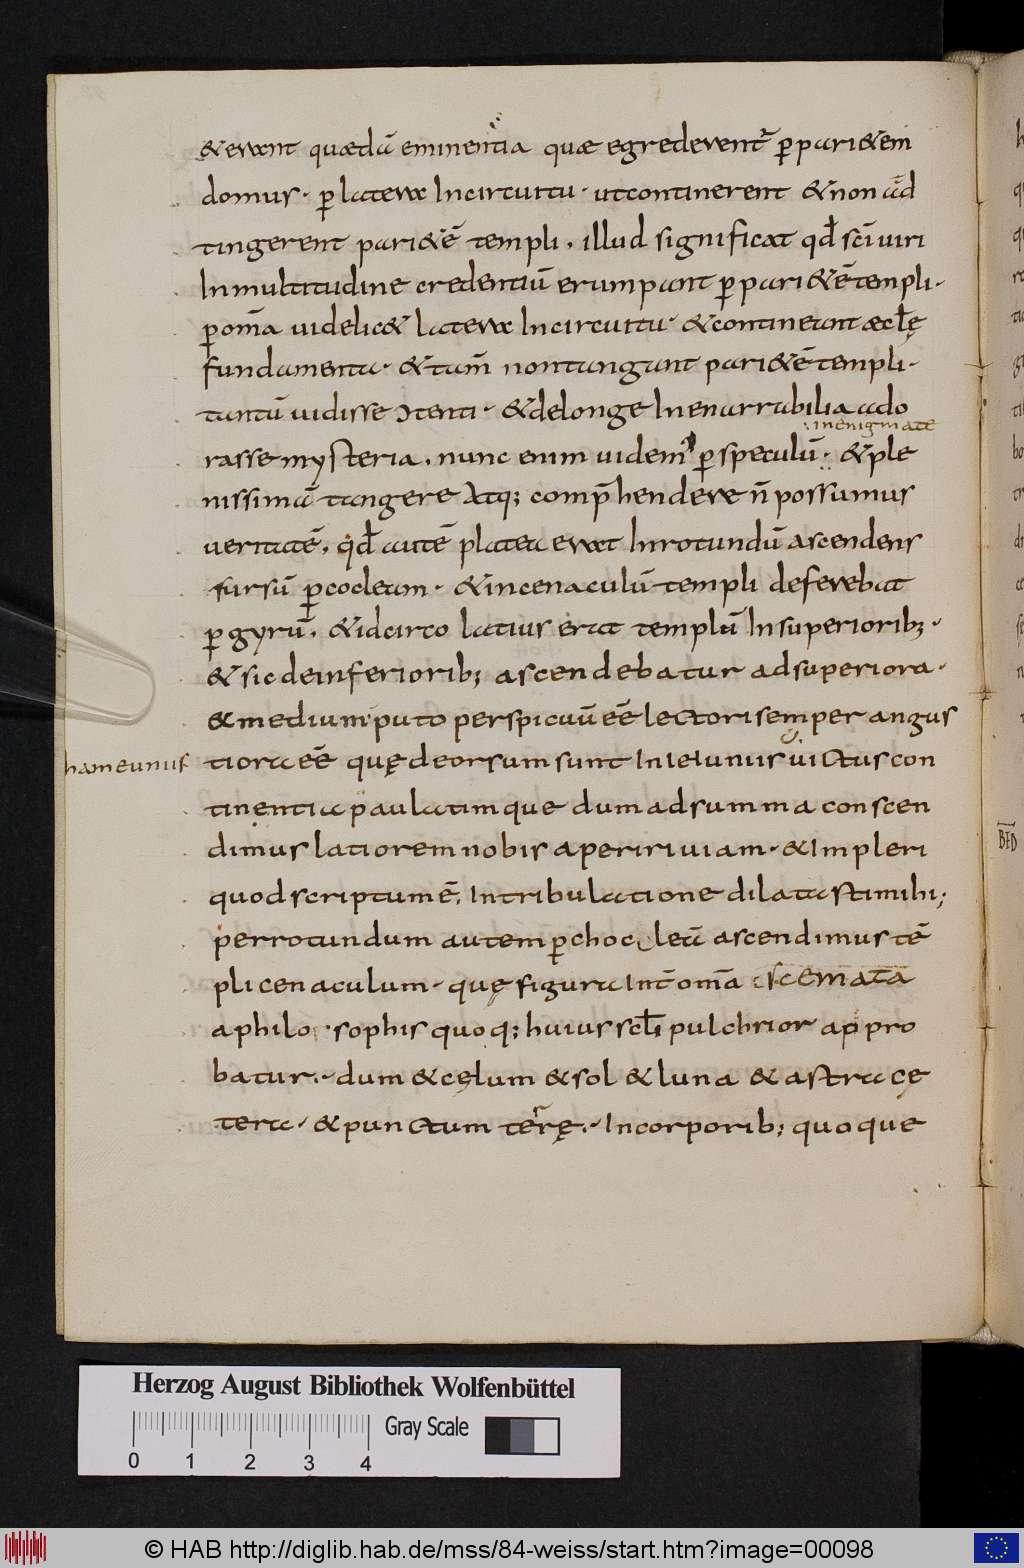 &erant quædā eminentia quæ egrederentr̄ p̱ pari&em
domus · p̱ latera In circuitu · ut continerent &non ad
tingerent pari&ē templi . illud significat qđ scī uiri
In multitudine credentiū erumpant p̱ pari&ē templi ·
p̱ om̄a uidelic& latera In circuitu · &contineant æcłę
fundamenta · &tam̄ non tangant pari&ē templi ·
tantū uidisse Itenti · &delonge In enarrabilia ado
: in enigmate
rasse mysteria . nunc enim uidem' p̱ speculū · &ple
nissimā tangere Atq; comp̄hendere n̄ possumus
ueritatē . qđ autē platea erat In rotundū ascendens
sursū p̱ cocleam · &in cenaculū templi deferebat
p̱ gyrū . &idcirco latius erat templū In superiorib; ·
&sic de inferiorib; ascendebatur ad superiora ·
&medium puto perspicuū eē lectori semper angus
tiora eē quę deorsum sunt In Ieiuniis uictus con
tinentia paulatimque dum ad summa conscen
dimus latiorem nobis aperiri uiam · &Impleri
quod scriptum ē . In tribulatione dilatasti mihi ;
per rotundum autem p̱ chocleā ascendimus tē
pli cenaculum · quę figura Int̄ om̄a scemata
a philosophis quoq; huius scłi pulchrior appro
batur · dum &cęlum &sol &luna &astra cę
tera · &punctum terrę · In corporib; quoque
BĒD
Herzog August Bibliothek Wolfenbüttel
Gray Scale
0 1 2 3 4
© HAB http://diglib.hab.de/mss/84-weiss/start.htm?image=00098